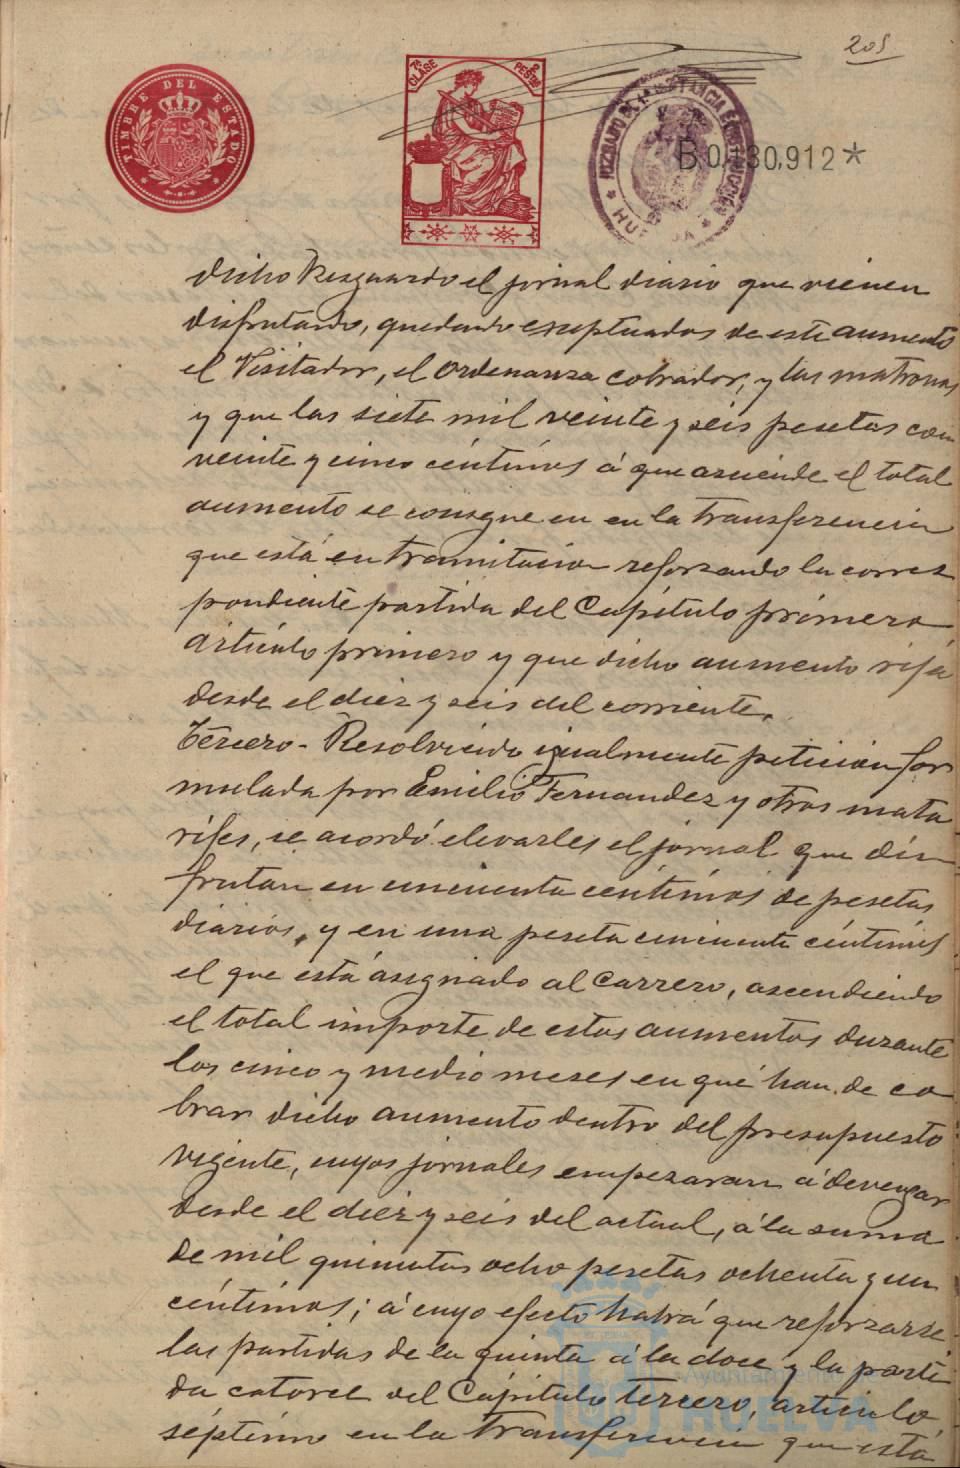 205
TIMBRE DEL ESTADO
7ª CLASE 2 PESETAS
JUZGADO DE 1ª INSTANCIA É INSTRUCCIÓN
* HUELVA *
B0,130,912*
dicho Resguardo el jornal diario que vienen
disfrutando, quedando exeptuados de este aumento
el Visitador, el Ordenanza cobrador, y las matronas
y que las siete mil veinte y seis pesetas con
veinte y cinco céntimos á que asciende el total
aumento se consignen en la transferencia
que está en tramitacion reforzando la corres
pondiente partida del Capítulo primero
artículo primero y que dicho aumento rija
desde el diez y seis del corriente.
Tercero - Resolviendo igualmente peticion for
mulada por Emilio Fernandez y otros mata
rifes, se acordó elevarles el jornal que dis
frutan en cincuenta céntimos de pesetas
diarios, y en una peseta cincuenta céntimos
el que está asignado al Carrero, ascendiendo
el total importe de estos aumentos durante
los cinco y medio meses en qué han de co
brar dicho aumento dentro del presupuesto
vigente, cuyos jornales empezaran á devengar
desde el diez y seis del actual, á la suma
de mil quinientas ocho pesetas ochenta y un
céntimos; á cuyo efecto habrá que reforzarse
las partidas de la quinta á la doce y la parti
da catorce del Capítulo tercero, artículo
séptimo en la transferencia que está
Ayuntamiento de
HUELVA